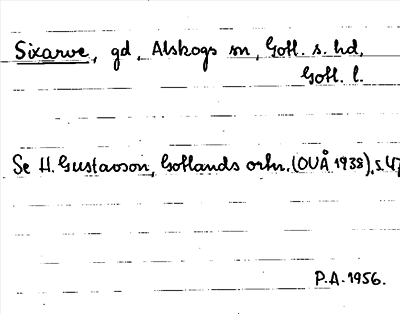 Sixarve, gd, Alskogs sn, Gotl. s. hd,
Gotl. l.
Se H. Gustavson, Gotlands ortn. (OUÅ 1938), s. 47
P.A. 1956.